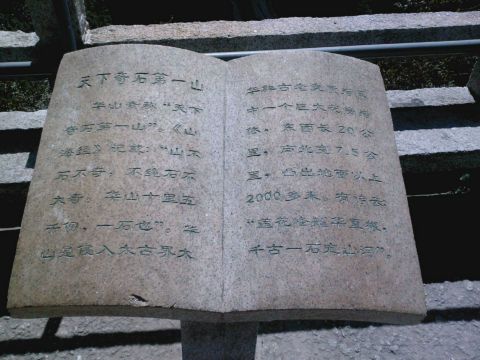 天下奇石第一山
华山素称“天下
奇石第一山”。《山
海经》记载：“山不
石不奇，不纯石不
大奇。华山十里五
千仞，一石也”。华
山是侵入太古界太
华群古老变质岩
中一个巨大花岗岩
体，东西长20公
里，南北宽7.5公
里，凸出地面以上
2000多米。有诗云：
“莲花
千古一石定山河”。